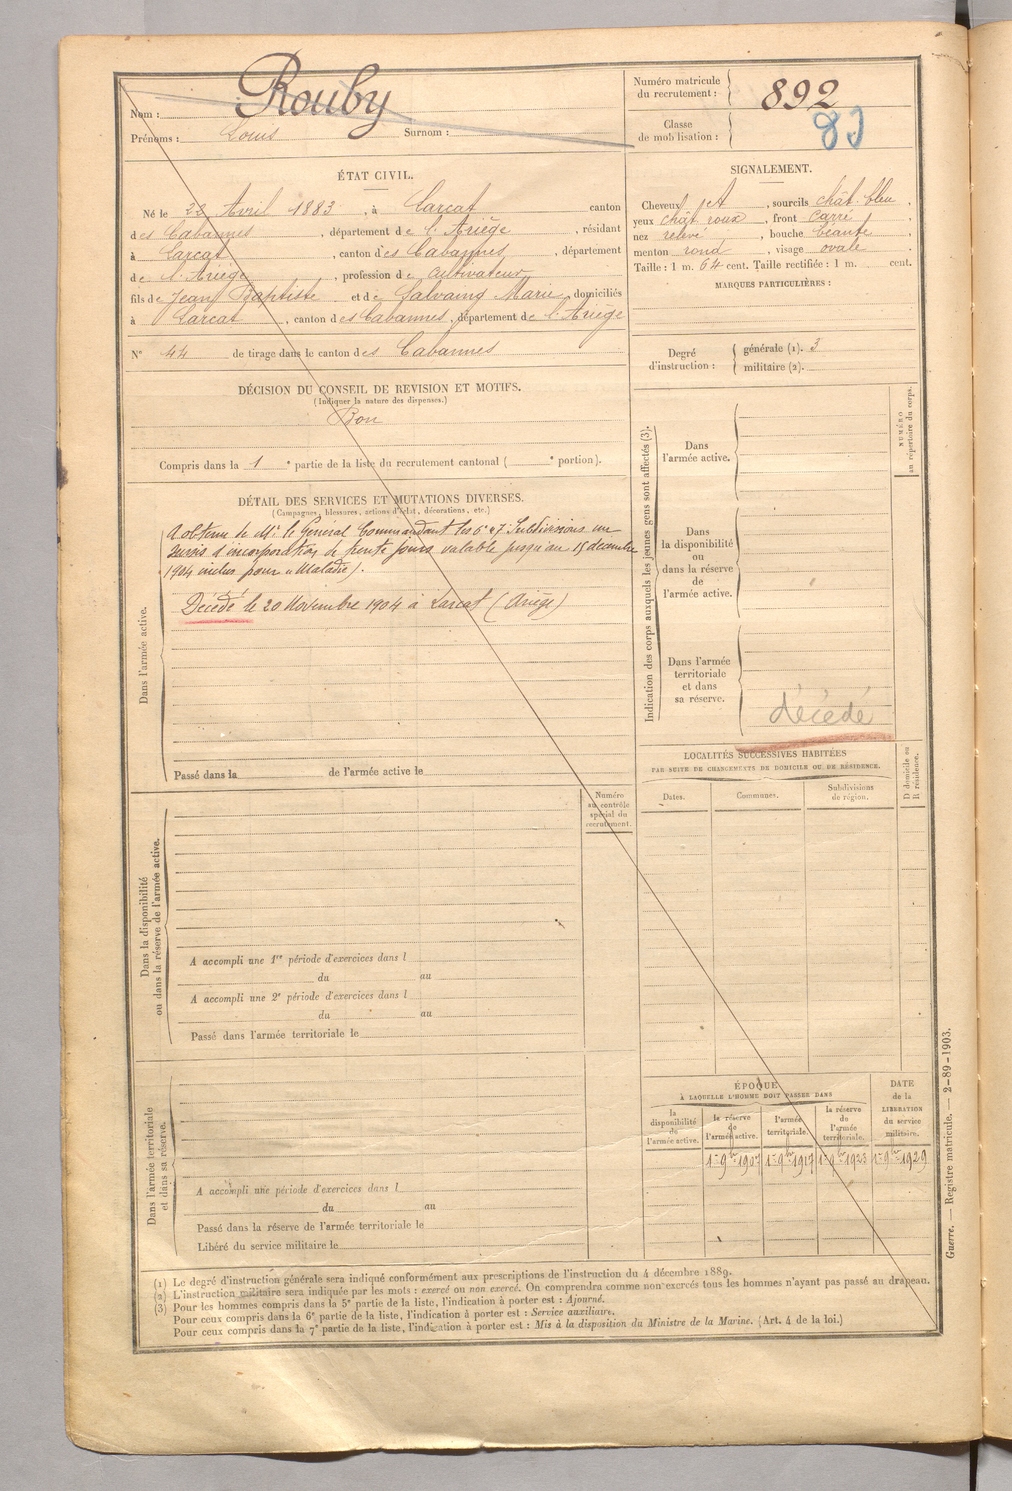 Nom : Rouby
Prénoms : Louis Surnom :
Numéro matricule du recrutement : 892
Classe de mobilisation :
ÉTAT CIVIL.
Né le 22 Avril 1883, à Larcat canton
des Cabannes, département de l'Ariège, résidant
à Larcat, canton des Cabannes, département
de l'Ariège, profession de cultivateur
fils de Jean Baptiste et de Salvaing Marie domiciliés
à Larcat, canton des Cabannes, département de l'Ariège
N° 44 de tirage dans le canton des Cabannes
SIGNALEMENT.
Cheveux et sourcils chât. bleu,
yeux chât. roux, front carré,
nez relevé, bouche béante,
menton rond, visage ovale
Taille : 1 m. 64 cent. Taille rectifiée : 1 m. cent.
MARQUES PARTICULIÈRES :
Degré d'instruction : générale (1). 3
militaire (2).
DÉCISION DU CONSEIL DE REVISION ET MOTIFS.
(Indiquer la nature des dispenses.)
Bon
Compris dans la 1e partie de la liste du recrutement cantonal ( e portion).
DÉTAIL DES SERVICES ET MUTATIONS DIVERSES.
(Campagnes, blessures, actions d'éclat, décorations, etc.)
Dans l'armée active.
A obtenu de Mr le Général Commandant les 6e et 7e Subdivisions un
sursis d'incorporation de trente jours valable jusqu'au 15 décembre
1904 inclus pour "Maladie).
Décédé le 20 Novembre 1904 à Larcat (Ariège)
Passé dans la de l'armée active le
Indication des corps auxquels les jeunes gens sont affectés (3).
NUMÉRO au répertoire du corps.
Dans l'armée active.
Dans la disponibilité ou dans la réserve de l'armée active.
Dans l'armée territoriale et dans sa réserve.
décédé
LOCALITÉS SUCCESSIVES HABITÉES
PAR SUITE DE CHANGEMENTS DE DOMICILE OU DE RÉSIDENCE.
Dates. Communes. Subdivisions de région.
D domicile ou R résidence.
Numéro au contrôle spécial du recrutement.
Dans la disponibilité ou dans la réserve de l'armée active.
A accompli une 1re période d'exercices dans l
du au
A accompli une 2e période d'exercices dans l
du au
Passé dans l'armée territoriale le
Dans l'armée territoriale et dans sa réserve.
A accompli une période d'exercices dans l
du au
Passé dans la réserve de l'armée territoriale le
Libéré du service militaire le
ÉPOQUE
À LAQUELLE L'HOMME DOIT PASSER DANS
la disponibilité de l'armée active.
la réserve de l'armée active.
l'armée territoriale.
la réserve de l'armée territoriale.
DATE de la LIBÉRATION du service militaire.
1er 9bre 1907 1er 9bre 1917 1er 9bre 1923 1er 9bre 1929
(1) Le degré d'instruction générale sera indiqué conformément aux prescriptions de l'instruction du 4 décembre 1889.
(2) L'instruction militaire sera indiquée par les mots : exercé ou non exercé. On comprendra comme non exercés tous les hommes n'ayant pas passé au drapeau.
(3) Pour les hommes compris dans la 5e partie de la liste, l'indication à porter est : Ajourné.
Pour ceux compris dans la 6e partie de la liste, l'indication à porter est : Service auxiliaire.
Pour ceux compris dans la 7e partie de la liste, l'indication à porter est : Mis à la disposition du Ministre de la Marine. (Art. 4 de la loi.)
Guerre. — Registre matricule. — 2-89-1903.